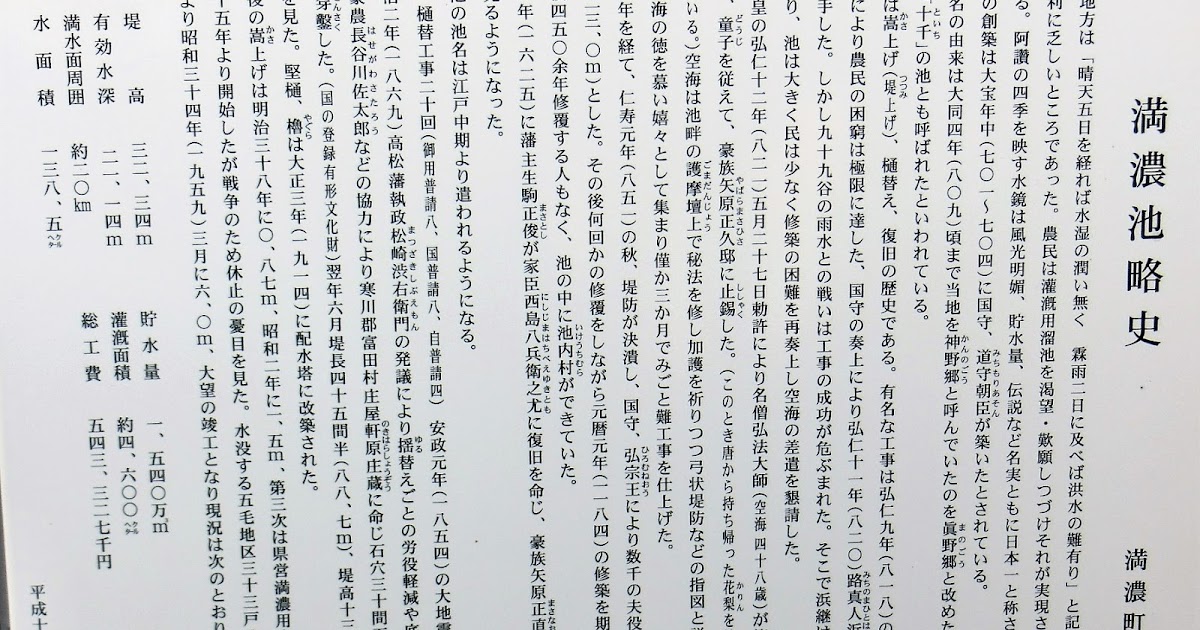 満濃池略史
満濃町
地方は「晴天五日を経れば水湿の潤い無く　霖雨二日に及べば洪水の難有り」と記
利に乏しいところであった。農民は灌漑用溜池を渇望・歎願しつづけそれが実現さ
る。阿讃の四季を映す水鏡は風光明媚、貯水量、伝説など名実ともに日本一と称さ
の創築は大宝年中（七〇一〜七〇四）に国守、道守朝臣が築いたとされている。
名の由来は大同四年（八〇九）頃まで当地を神野郷と呼んでいたのを眞野郷と改めた
十千」の池とも呼ばれたといわれている。
は嵩上げ（堤上げ）、樋替え、復旧の歴史である。有名な工事は弘仁九年（八一八）の
により農民の困窮は極限に達した、国守の奏上により弘仁十一年（八二〇）路真人浜
手した。しかし九十九谷の雨水との戦いは工事の成功が危ぶまれた。そこで浜継は
り、池は大きく民は少なく修築の困難を再奏上し空海の差遣を懇請した。
皇の弘仁十二年（八二一）五月二十七日勅許により名僧弘法大師（空海 四十八歳）が
、童子を従えて、豪族矢原正久邸に止錫した。（このとき唐から持ち帰った花梨を
いる。）空海は池畔の護摩壇上で秘法を修し加護を祈りつつ弓状堤防などの指図と
海の徳を慕い嬉々として集まり僅か三か月でみごと難工事を仕上げた。
年を経て、仁寿元年（八五一）の秋、堤防が決潰し、国守、弘宗王により数千の夫役
三三、〇ｍ）とした。その後何回かの修覆をしながら元暦元年（一一八四）の修築を期
四五〇余年修覆する人もなく、池の中に池内村ができていた。
年（一六二五）に藩主生駒正俊が家臣西島八兵衛之尤に復旧を命じ、豪族矢原正直
るようになった。
池の池名は江戸中期より遣われるようになる。
樋替工事二十回（御用普請八、国普請八、自普請四）　安政元年（一八五四）の大地震
治二年（一八六九）高松藩執政松崎渋右衛門の発議により揺替えごとの労役軽減や底
豪農長谷川佐太郎などの協力により寒川郡富田村庄屋軒原庄蔵に命じ石穴三十間
穿鑿した。（国の登録有形文化財）翌年六月堤長四十五間半（八八、七ｍ）、堤高十三
を見た。堅樋、櫓は大正三年（一九一四）に配水塔に改築された。
後の嵩上げは明治三十八年に〇、八七ｍ、昭和二年に一、五ｍ、第三次は県営満濃用
十五年より開始したが戦争のため休止の憂目を見た。水没する五毛地区三十三戸
り昭和三十四年（一九五九）三月に六、〇ｍ、大望の竣工となり現況は次のとおり
堤高　三二、三四ｍ　貯水量　一、五四〇万㎥
有効水深　二一、一四ｍ　灌漑面積　約四、六〇〇㌶
満水面周囲　約二〇㎞　総工費　五四三、三二七千円
水面積　一三八、五㌶
平成十